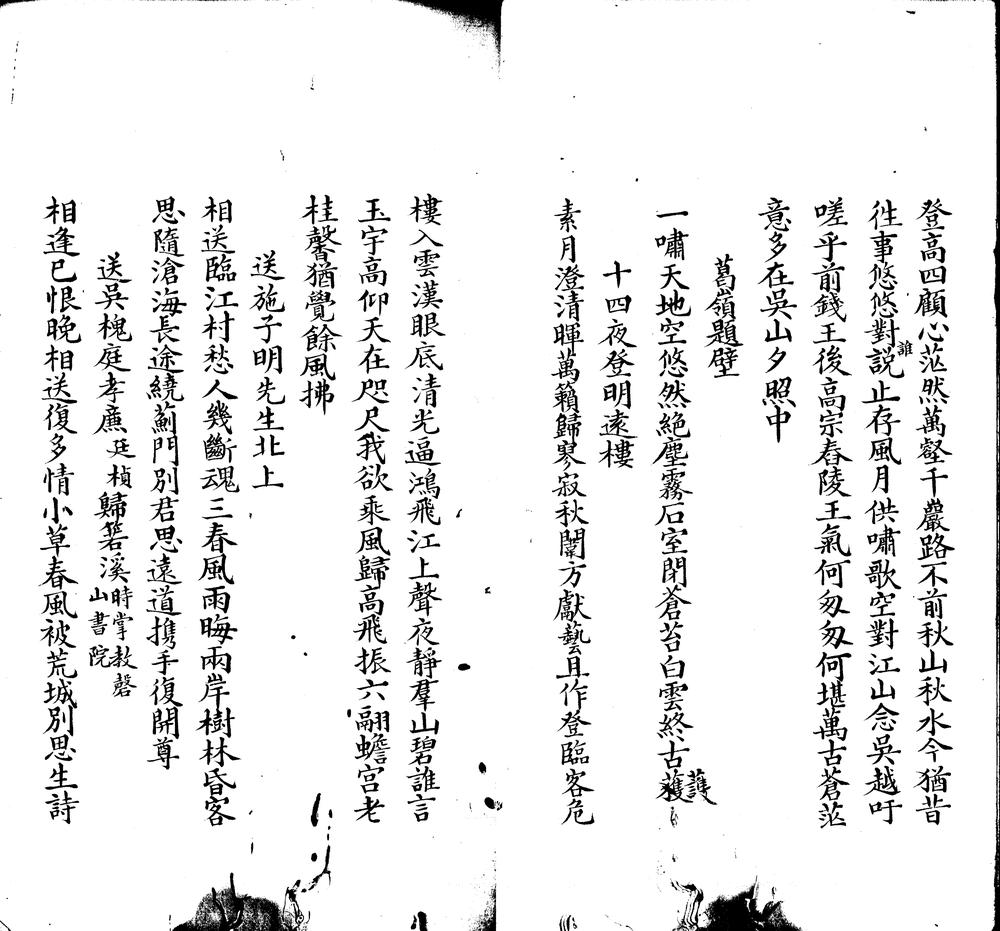 登高四顧心茫然萬壑千巖路不前秋山秋水今猶昔
徃事悠悠對誰説止存風月供嘯歌空對江山念吳越吁
嗟乎前錢王後高宗舂陵王氣何匆匆何堪萬古蒼茫
意多在吳山夕照中
葛嶺題壁
一嘯天地空悠然絶塵霧石室閉蒼苔白雲終古護
十四夜登明遠樓
素月澄清暉萬籟歸寥寂秋闈方獻藝且作登臨客危
樓入雲漢眼底清光逼鴻飛江上聲夜靜羣山碧誰言
玉宇高仰天在咫尺我欲乘風歸高飛振六翮蟾宫老
桂馨猶覺餘風拂
送施子明先生北上
相送臨江村愁人幾斷魂三春風雨晦兩岸樹林昏客
思隨滄海長途繞薊門別君思遠道携手復開尊
送吳槐庭孝廉廷楨歸箬溪時掌教磬山書院
相逢已恨晚相送復多情小草春風被荒城別思生詩